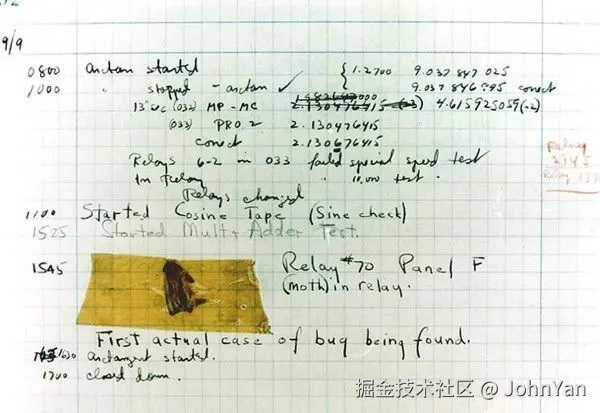 9/9
0800 Antan started { 1.2700 9.037 847 025
1000 " stopped - antan ✓ 9.037 846 995 conect
13"UC (032) MP - MC 2.130476415 (-3) 4.615925059(-2)
(033) PRO 2 2.130476415
conect 2.130676415
Relays 6-2 in 033 failed special speed test
in Relay " 10,000 test .
Relay
3145
Relay 337
Relays changed
1100 Started Cosine Tape (Sine check)
1525 Started Mult + Adder Test.
1545 Relay #70 Panel F
(moth) in relay.
First actual case of bug being found.
1630 Antangent started.
1700 closed down .
掘金技术社区 @ JohnYan